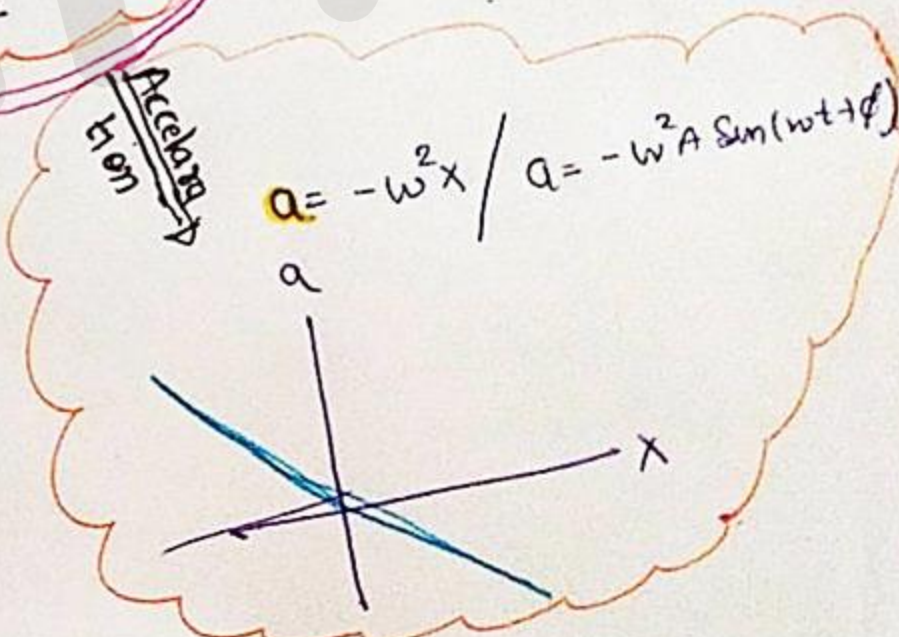 Accelara
tion
a = -ω²x / a = -ω²A Sin(ωt+φ)
a
x